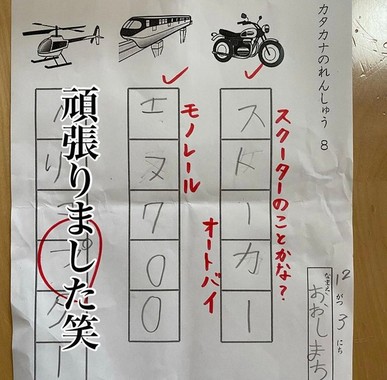 カタカナのれんしゅう 8
12がつ3にち
なまえ
おおしまち
スクーターのことかな?
スドーカー
オートバイ
モノレール
エヌ700
頑張りました笑